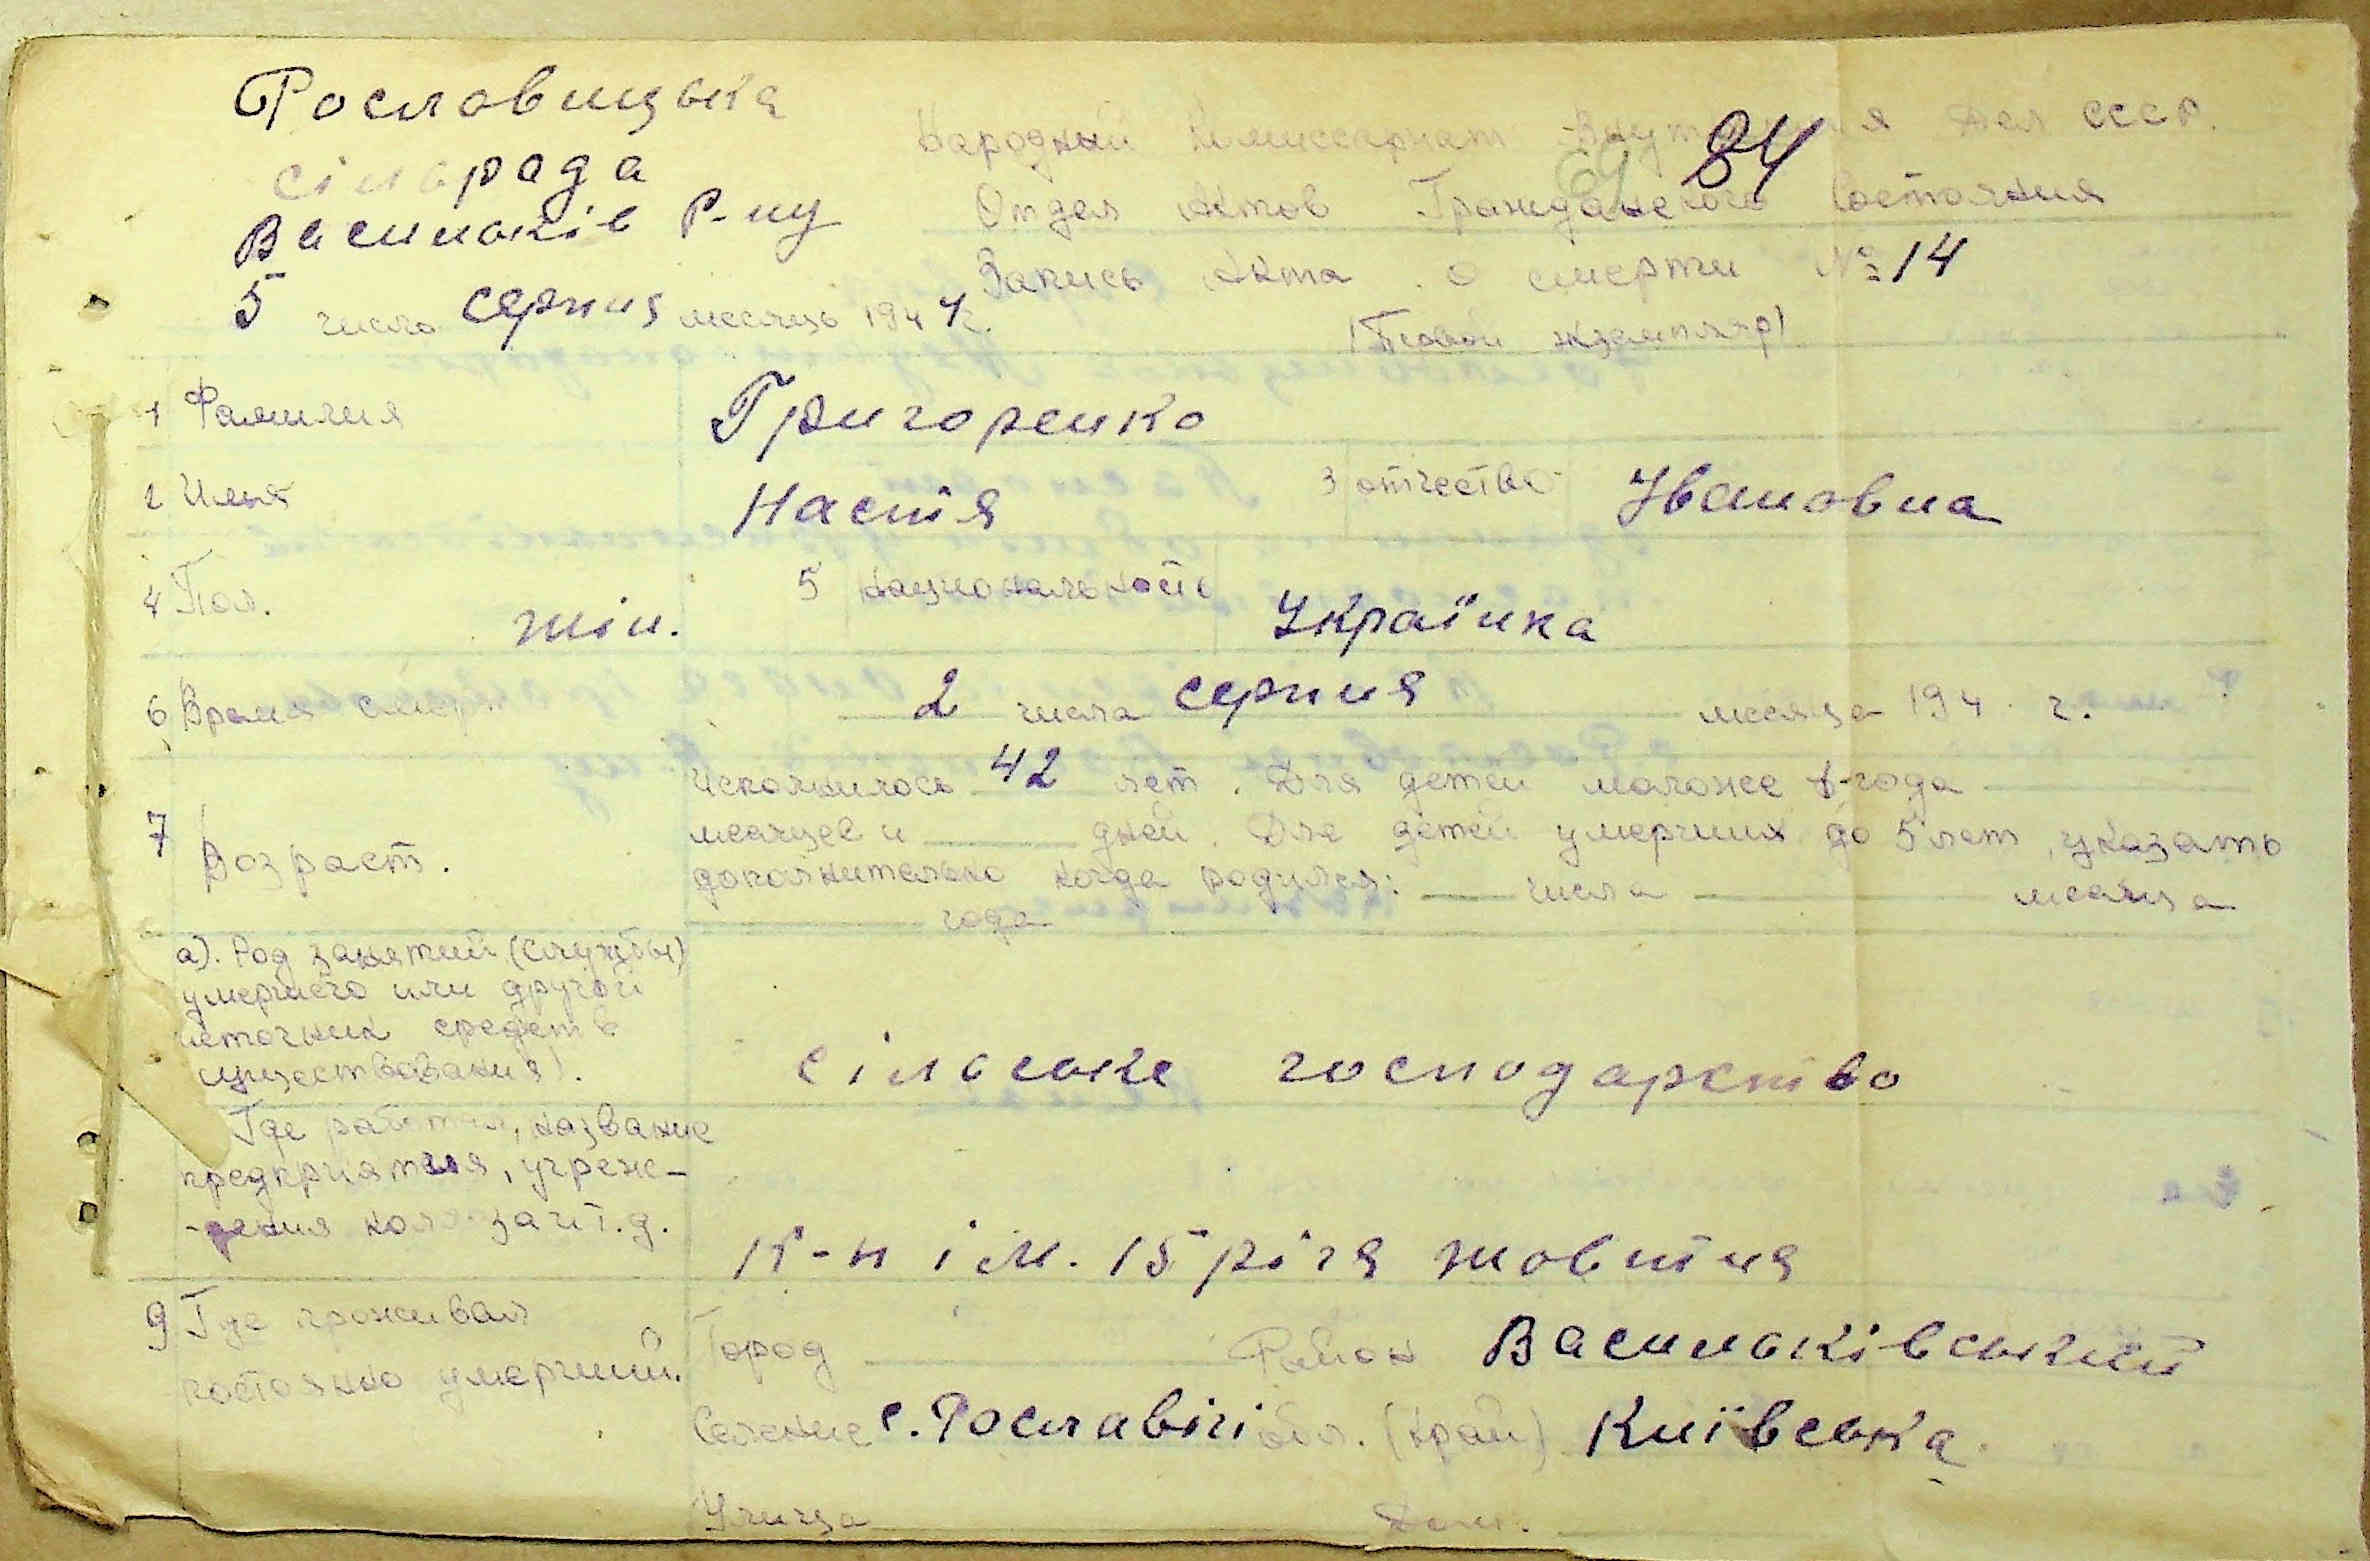 Рословицька
сільрада
Васильків Р-ну
5 число серпня месяць 1944г.
Народный Комиссариат Внутр я Дел СССР.
84
Отдел Актов Гражданского Состояния
Запись Акта о смерти № 14
(Первой экземпляр)
1 Фамилия Григоренко
2 Имья Настя 3 отчество Ивановна
4 Пол. жін. 5 национальность Українка
6 Время смерти 2 числа серпня месяца 194 г.
7 Возраст. Исполнилось 42 лет. Для детей моложе 1-года
месяцев и дней. Для детей умерших до 5 лет, указать
дополнительно когда родился: числа месяца
года
а). Род занятий (службы)
умершего или другой
источник средств
существования). сільське господарство
Где работал, название
предприятия, учреж-
-дения колхоза и т.д. К-п ім. 15 річя жовтня
9 Где проживал
постоянно умерший.
Город Район Васильківський
Селение с. Рославічі обл. (край) Київська.
Улица Дом.